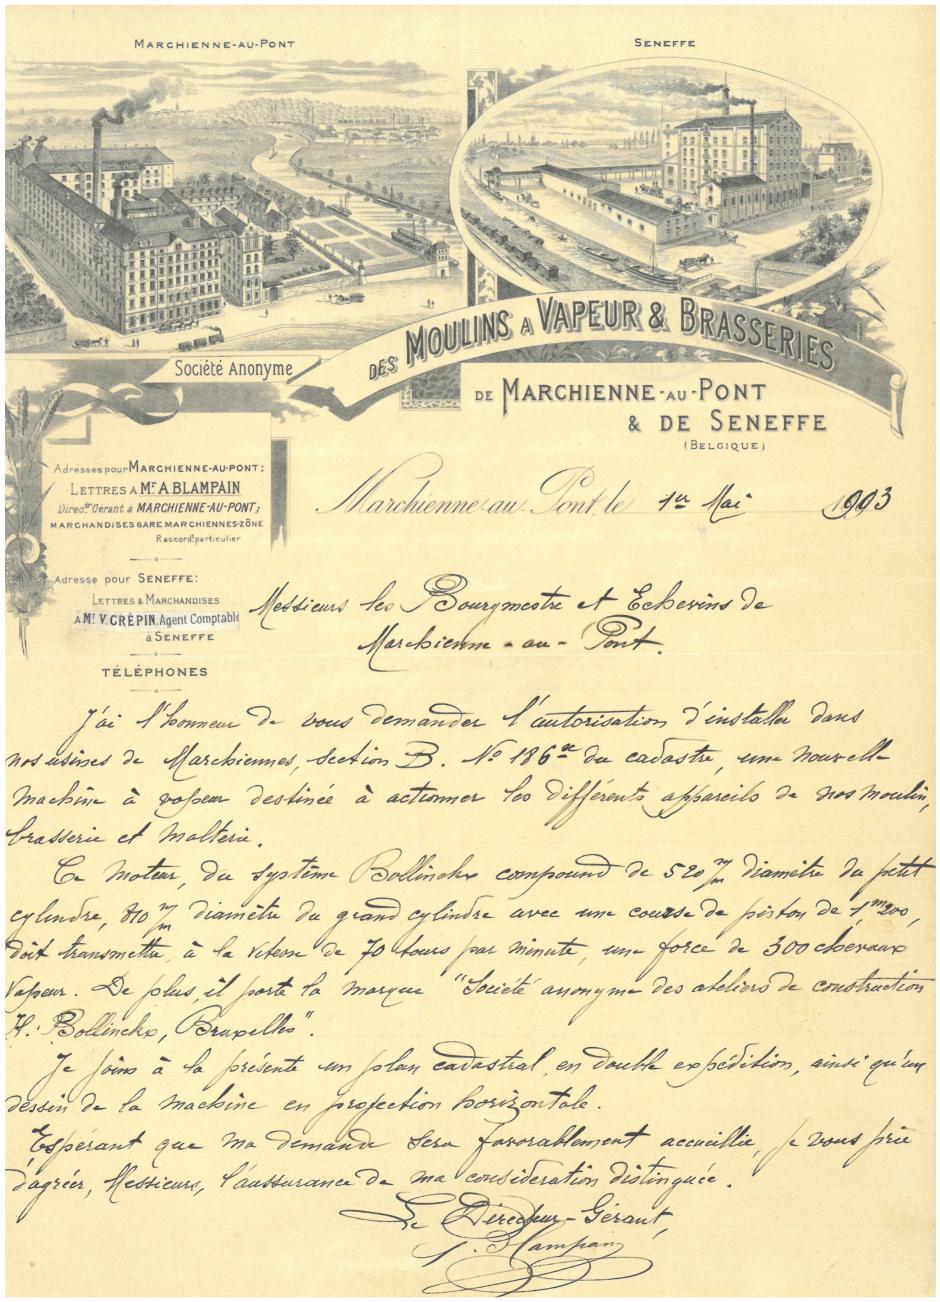 MARCHIENNE-AU-PONT
SENEFFE
Société Anonyme
DES MOULINS A VAPEUR & BRASSERIES
DE MARCHIENNE-AU-PONT
& DE SENEFFE
(BELGIQUE)
Adresses pour MARCHIENNE-AU-PONT:
LETTRES A Mr. A. BLAMPAIN
Direcr. Gérant à MARCHIENNE-AU-PONT;
MARCHANDISES GARE MARCHIENNES-ZÔNE
Raccordt. particulier
Adresse pour SENEFFE:
LETTRES & MARCHANDISES
À Mr V. CRÉPIN, Agent Comptable
à SENEFFE
TÉLÉPHONES
Marchienne-au-Pont, le 1er Mai 1903
Messieurs les Bourgmestre et Echevins de
Marchienne-au-Pont.
J'ai l'honneur de vous demander l'autorisation d'installer dans
nos usines de Marchiennes, section B. No 186 du cadastre, une nouvelle
machine à vapeur destinée à actionner les différents appareils de nos moulin,
brasserie et malterie.
Ce moteur, du système Bollinckx compound de 520 m/m diamètre du petit
cylindre, 810 m/m diamètre du grand cylindre avec une course de piston de 1m200,
doit transmettre, à la vitesse de 70 tours par minute, une force de 300 chevaux
vapeur. De plus, il porte la marque "Société anonyme des ateliers de construction
H. Bollinckx, Bruxelles".
Je joins à la présente un plan cadastral, en double expédition, ainsi qu'un
dessin de la machine en projection horizontale.
Espérant que ma demande sera favorablement accueillie, je vous prie
d'agréer, Messieurs, l'assurance de ma considération distinguée.
Le Directeur-Gérant,
Blampain